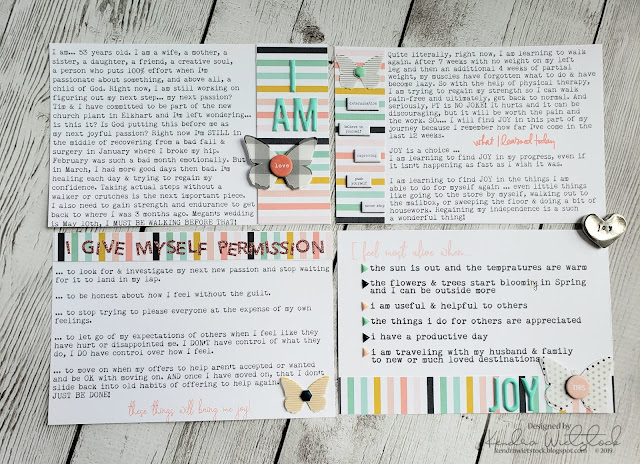 I am... 53 years old. I am a wife, a mother, a
sister, a daughter, a friend, a creative soul,
a person who puts 100% effort when I'm
passionate about something, and above all, a
child of God. Right now, I am still working on
figuring out my next step... my next passion?
Tim & I have committed to be part of the new
church plant in Elkhart and I'm left wondering...
is this it? Is God putting this before me as
my next joyful passion? Right now I'm STILL in
the middle of recovering from a bad fall &
surgery in January where I broke my hip.
February was such a bad month emotionally. But
in March, I had more good days then bad. I'm
healing each day & trying to regain my
confidence. Taking actual steps without a
walker or crutches is the next important piece.
I also need to gain strength and endurance to get
back to where I was 3 months ago. Megan's wedding
is May 10th, I MUST BE WALKING BEFORE THAT!
I
AM
love
Quite literally, right now, I am learning to walk
again. After 7 weeks with no weight on my left
leg and then an additional 4 weeks of partial
weight, my muscles have forgotten what to do & have
become lazy. So with the help of physical therapy,
I am trying to regain my strength so I can walk
pain-free and ultimately, get back to normal. And
seriously, it is NO JOKE! It hurts and it can be
discouraging, but it will be worth the pain and
the work. SO... I will find JOY in this part of my
journey because I remember how far I've come in the
last 12 weeks.
what I learned today
JOY is a choice ...
I am learning to find JOY in my progress, even if
it isn't happening as fast as I wish it was.
I am learning to find JOY in the things I am
able to do for myself again .. even little things
like going to the store by myself, walking out to
the mailbox, or sweeping the floor & doing a bit of
housework. Regaining my independence is such
a wonderful thing!
determination
believe in yourself
push yourself
joy
I GIVE MYSELF PERMISSION
... to look for & investigate my next new passion and stop waiting
for it to land in my lap.
... to be honest about how I feel without the guilt.
... to stop trying to please everyone at the expense of my own
feelings.
... to let go of my expectations of others when I feel like they
have hurt or disappointed me. I DON't have control of what they
do, I DO have control over how I feel.
... to move on when my offers to help aren't accepted or wanted
and be OK with moving on. AND once I have moved on, that I don't
slide back into old habits of offering to help again.
JUST BE DONE!
these things will bring me joy!
I feel most alive when...
the sun is out and the tempratures are warm
the flowers & trees start blooming in Spring
and I can be outside more
i am useful & helpful to others
the things i do for others are appreciated
i have a productive day
i am traveling with my husband & family
to new or much loved destinations
JOY
THIS
Designed by
Kendra Wietstock
kendrawietstock.blogspot.com © 2019